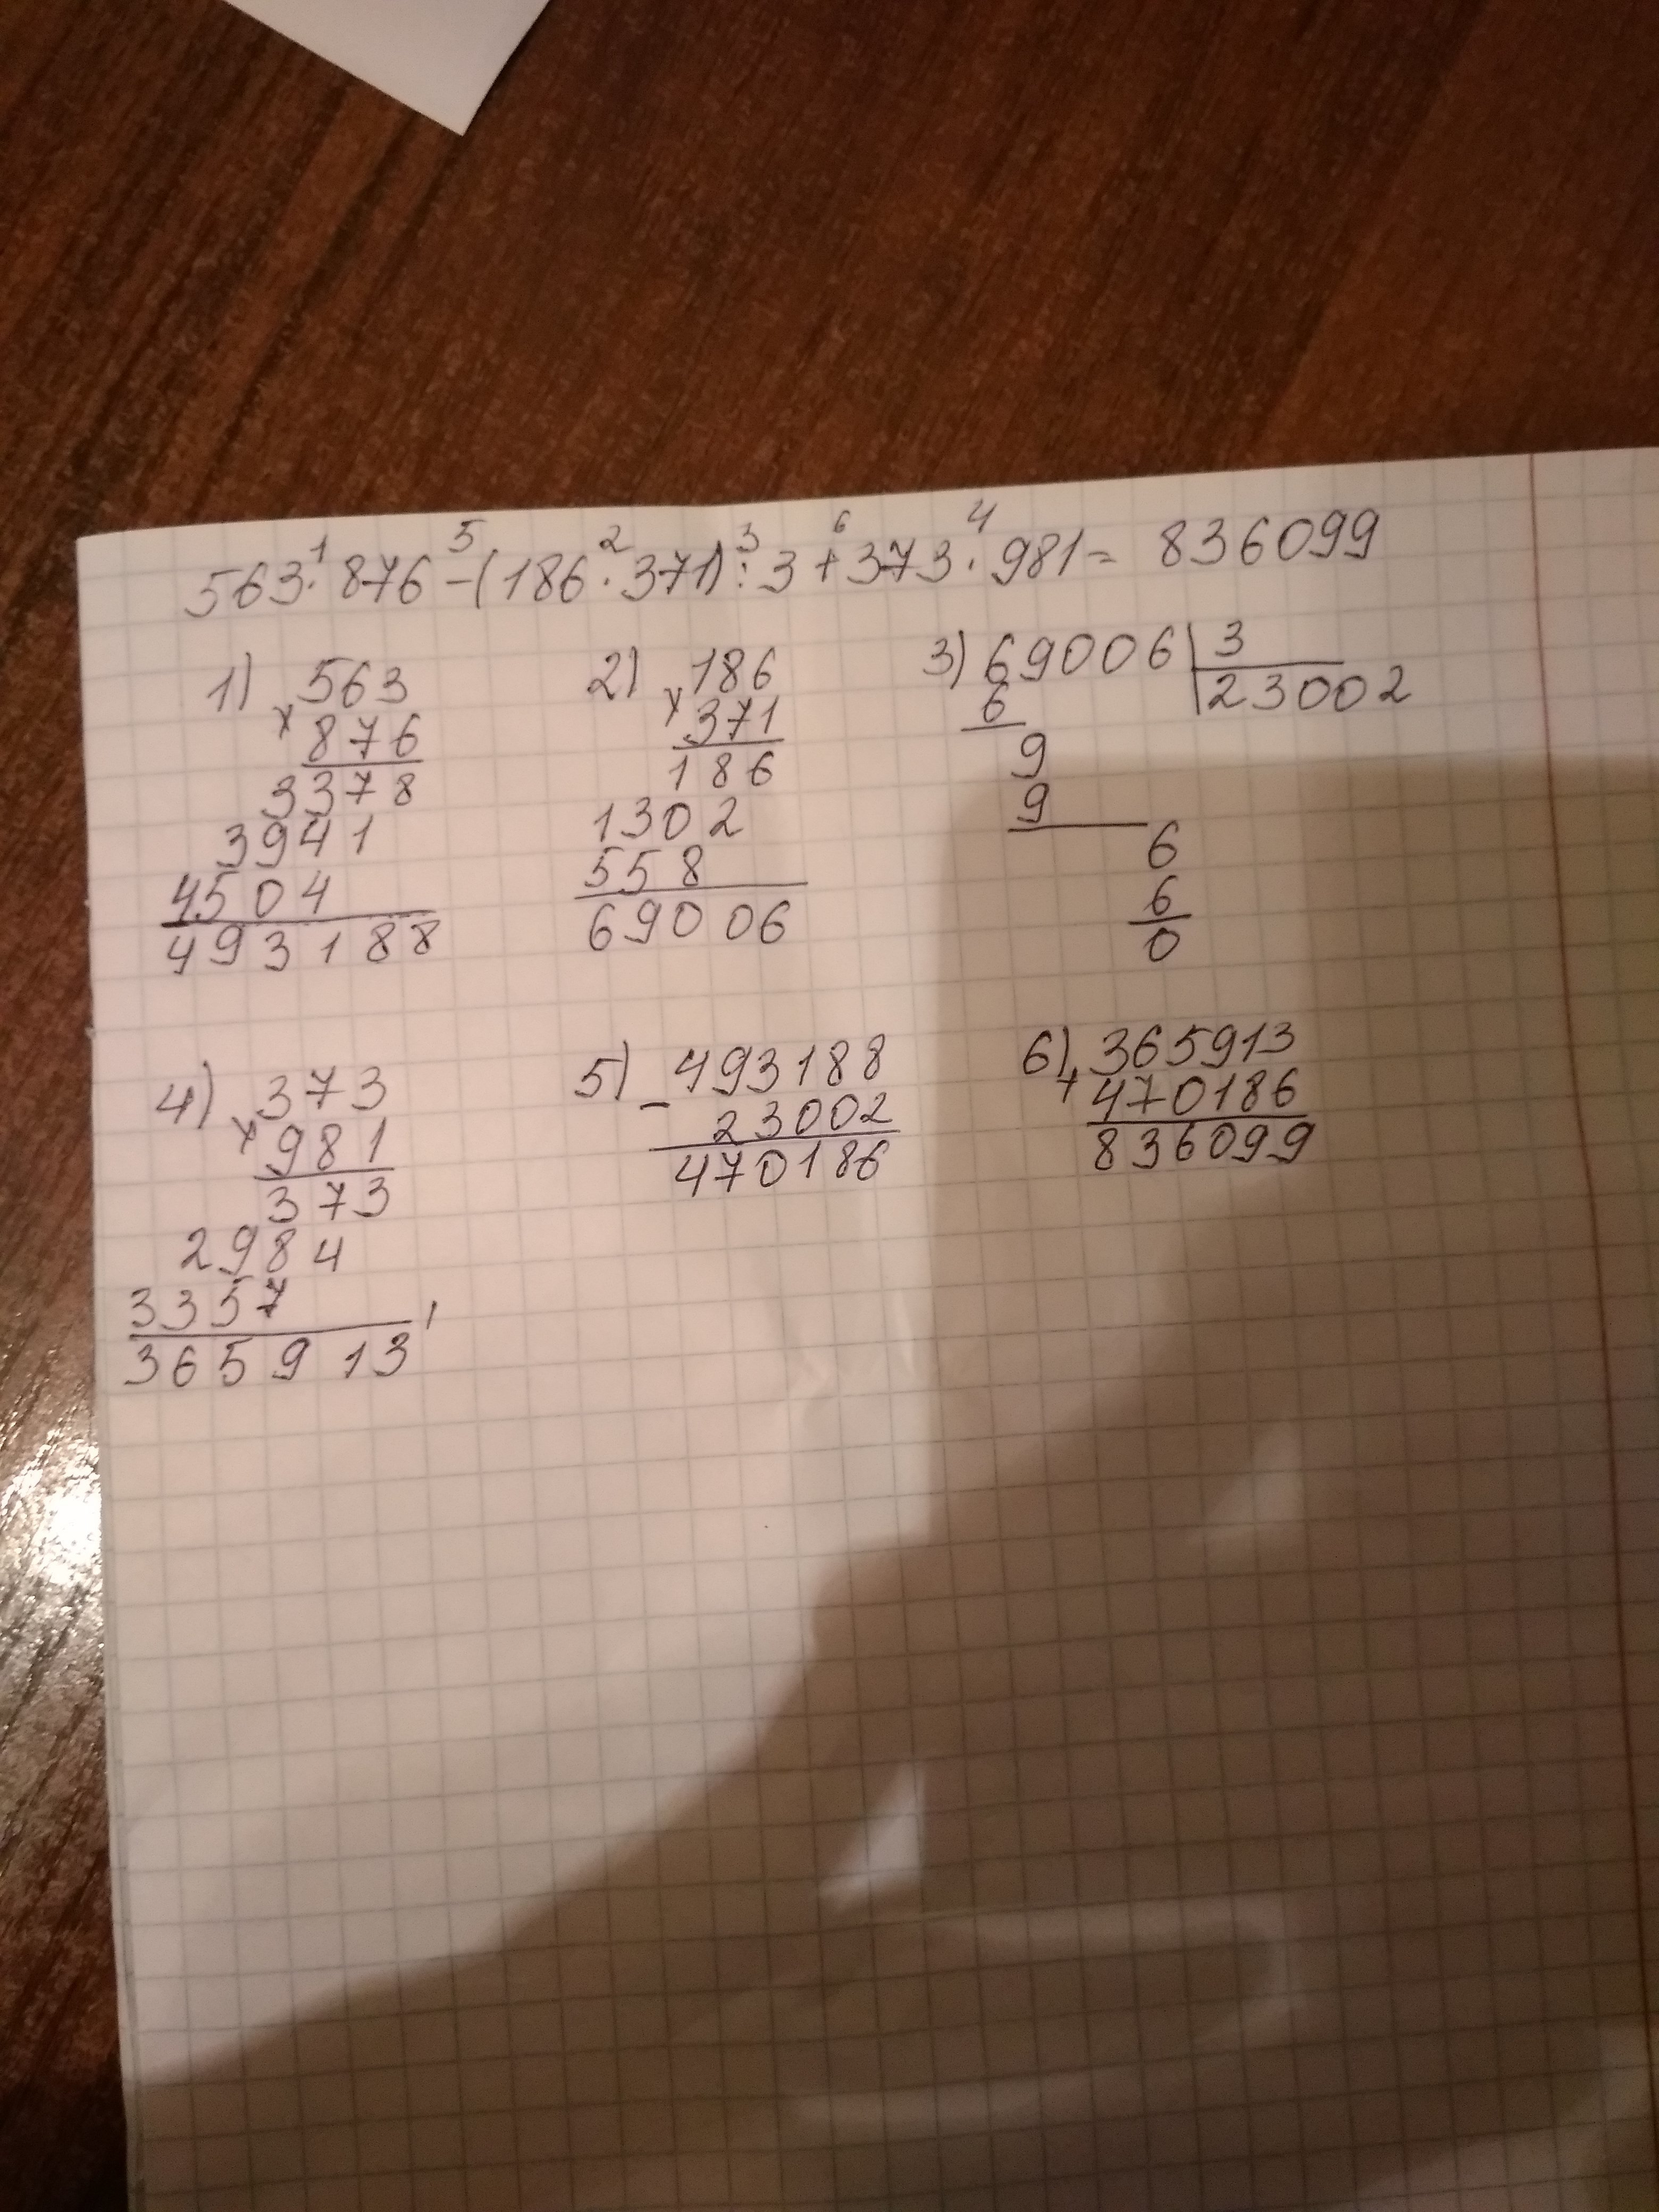 563 · 876 - (186 · 371) : 3 + 373 · 981 = 836099
1 5 2 3 6 4
1) × 563
876
3378
3941
4504
493188
2) × 186
371
186
1302
558
69006
3) 69006 | 3
6 23002
9
9
6
6
0
4) × 373
981
373
2984
3357
365913
5) - 493188
23002
470186
6) + 365913
470186
836099